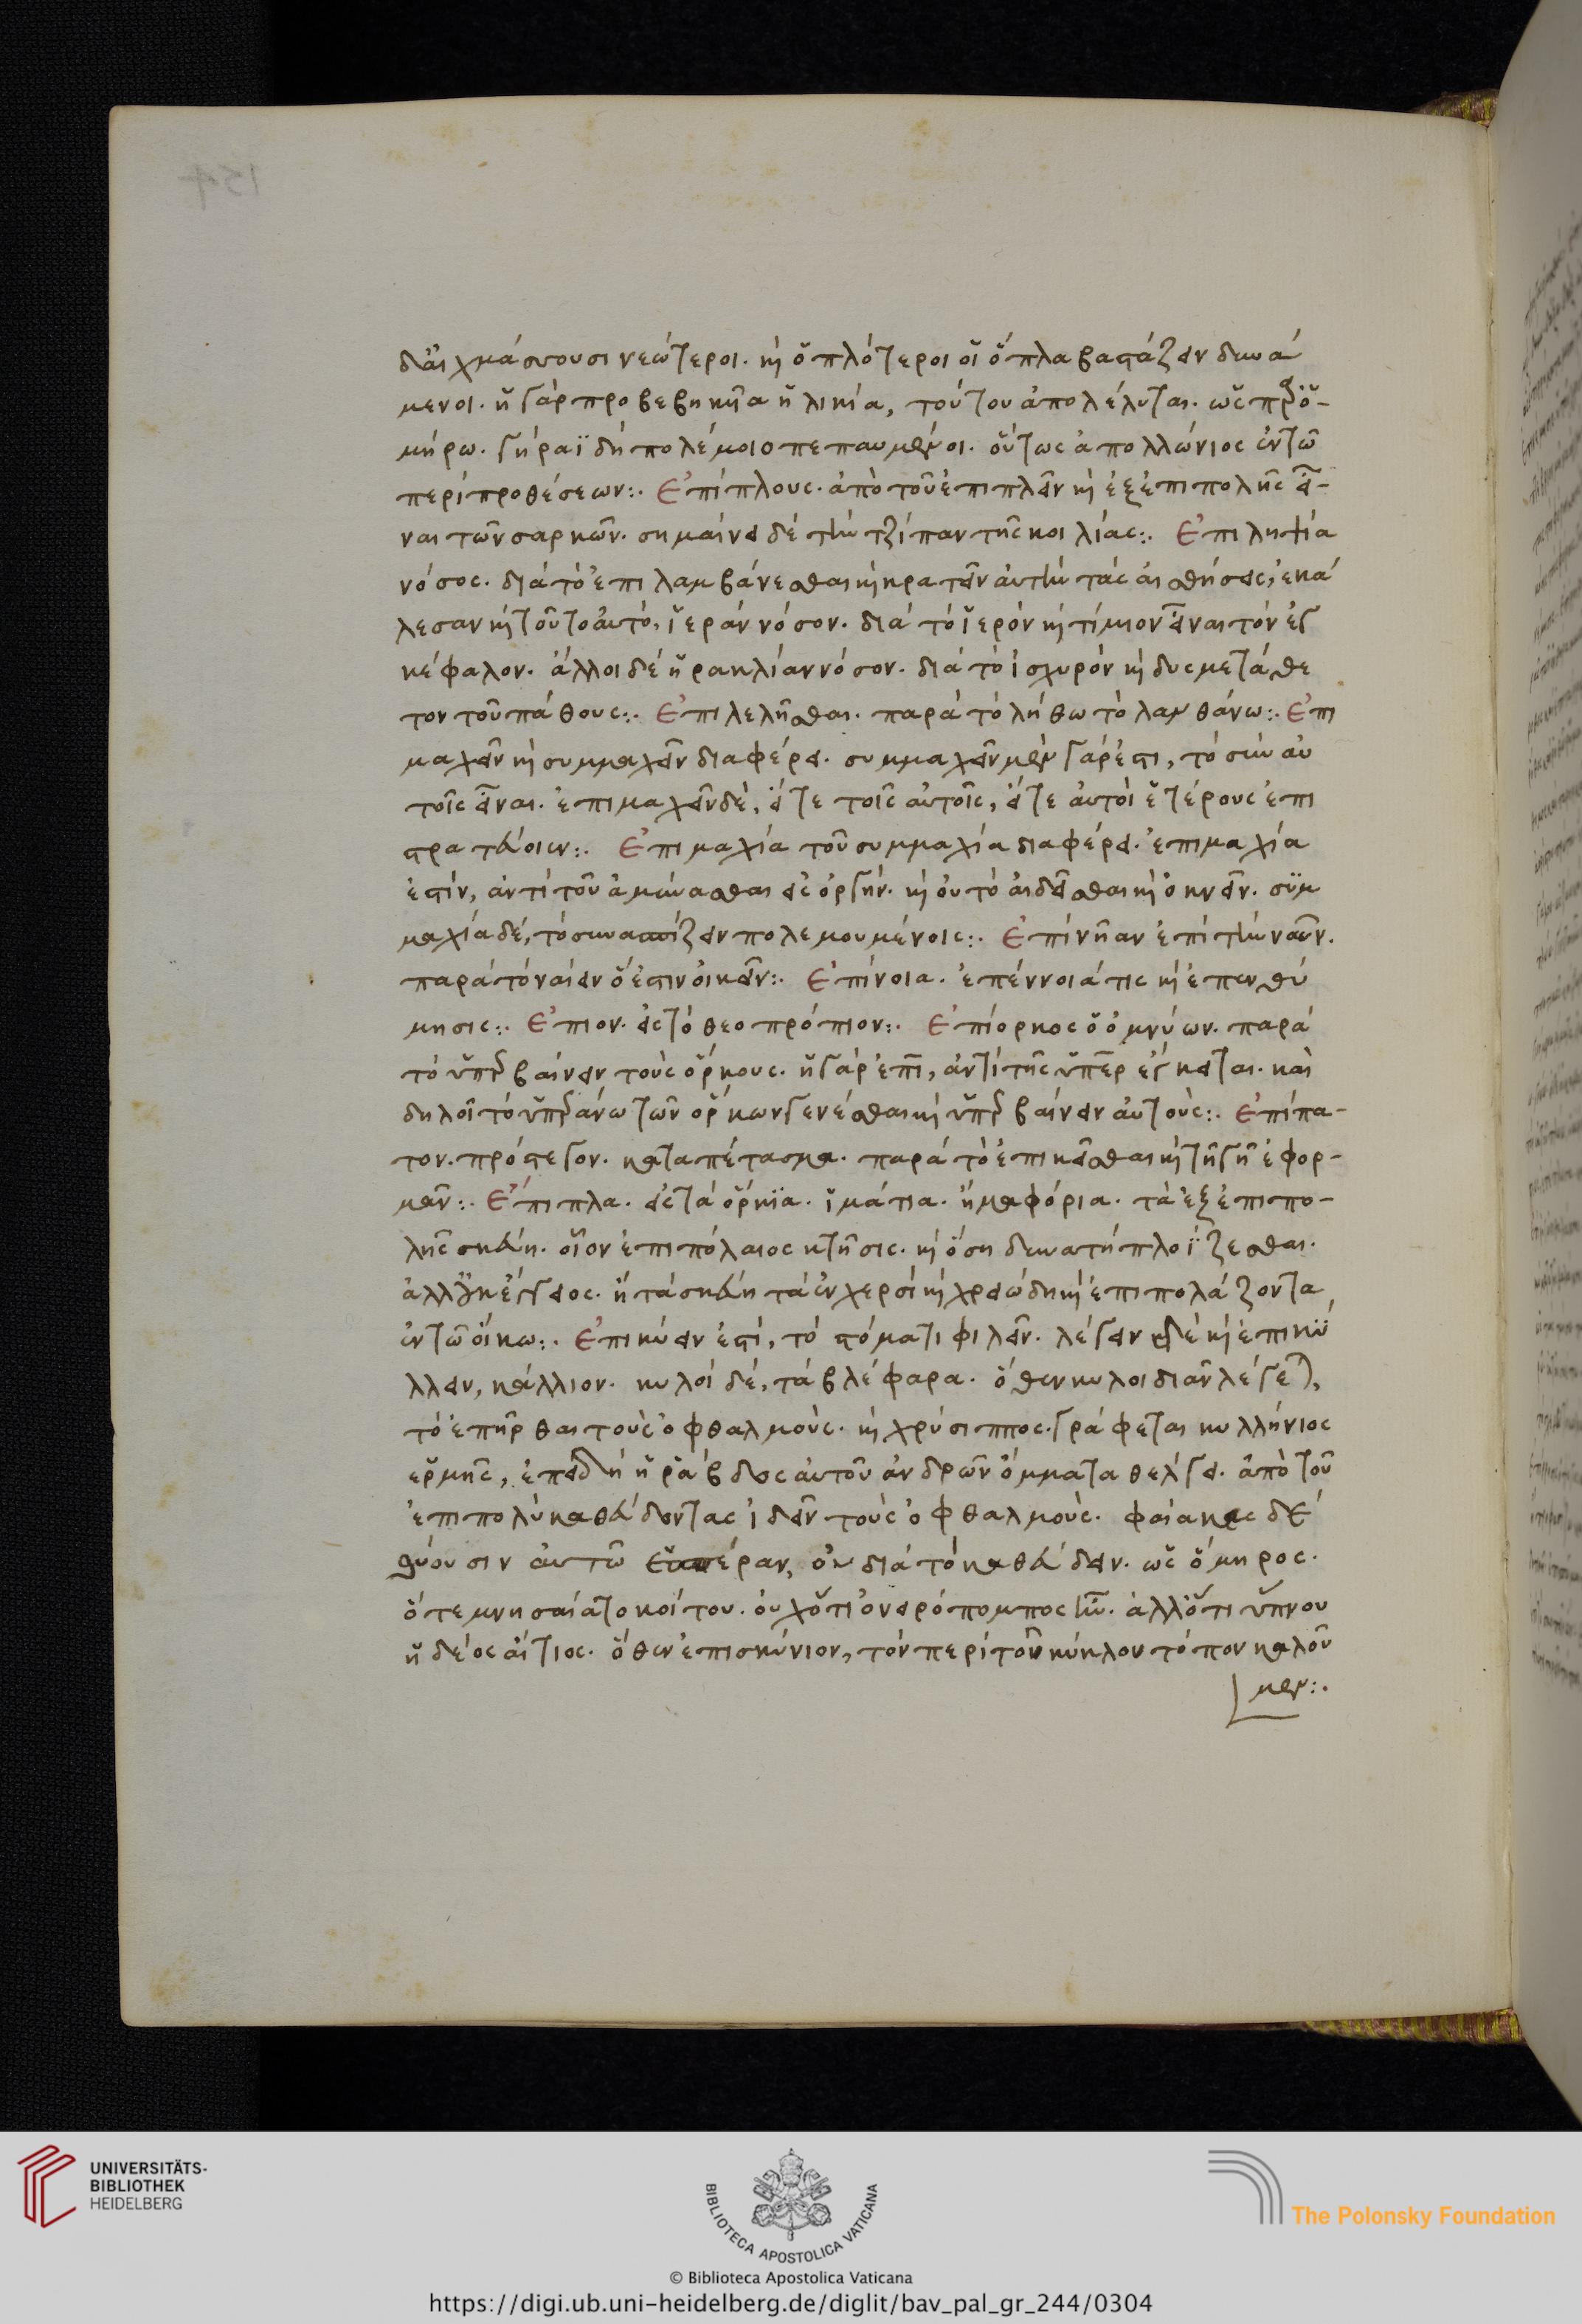 δ' αἰχμάσσουσι νεώτεροι. καὶ ὁπλότεροι οἱ ὅπλα βαστάζειν δυνά
μενοι. ἡ γὰρ προβεβηκυῖα ἡλικία, τούτου ἀπολέλυται. ὡς παρ' ὁ-
μήρω. γήραϊ δὴ πολέμοιο πεπαυμένοι. οὕτως ἀπολλώνιος ἐν τῶ
περὶ προθέσεων:. Ἐπίπλους. ἀπὸ τοῦ ἐπιπλεῖν καὶ ἐξ ἐπιπολῆς εἶ-
ναι τῶν σαρκῶν. σημαίνει δὲ τὴν τζίπαν τῆς κοιλίας:. Ἐπιληψία
νόσος. διὰ τὸ ἐπιλαμβάνεσθαι καὶ κρατεῖν αὐτὴν τὰς αἰσθήσεις, ἐκά
λεσαν καὶ τοῦτο αὐτὸ, ἱερὰν νόσον. διὰ τὸ ἱερὸν καὶ τίμιον εἶναι τὸν ἐγ
κέφαλον. ἄλλοι δὲ ἡρακλίαν νόσον. διὰ τὸ ἰσχυρὸν καὶ δυσμετάθε
τον τοῦ πάθους:. Ἐπιλελῆσθαι. παρὰ τὸ λήθω τὸ λανθάνω:. Ἐπι
μαχεῖν καὶ συμμαχεῖν διαφέρει. συμμαχεῖν μὲν γάρ ἐστι, τὸ σὺν αὐ
τοῖς εἶναι. ἐπιμαχεῖν δὲ, εἴτε τοῖς αὐτοῖς, εἴτε αὐτοὶ ἑτέρους ἐπι
στρατεύσιεν:. Ἐπιμαχία τοῦ συμμαχία διαφέρει. ἐπιμαχία
ἐστίν, ἀντὶ τοῦ ἀμύνασθαι εἰς ὀργήν. καὶ οὐ τὸ αἰδεῖσθαι καὶ ὀκνεῖν. συμ
μαχία δὲ, τὸ συνασπίζειν πολεμουμένοις:. Ἐπὶ νῆαν ἐπὶ τὴν ναῦν.
παρὰ τὸ ναίειν ὅ ἐστιν οἰκεῖν:. Ἐπίνοια. ἐπέννοιά τις καὶ ἐπενθύ
μησις:. Ἔπιον. εἰς τὸ θεοπρόπιον:. Ἐπίορκος ὁ ὀμνύων. παρὰ
τὸ ὑπερβαίνειν τοὺς ὅρκους. ἡ γὰρ ἐπὶ, ἀντὶ τῆς ὑπὲρ ἔγκειται. καὶ
δηλοῖ τὸ ὑπεράνω τῶν ὅρκων γενέσθαι καὶ ὑπερβαίνειν αὐτούς:. Ἐπίπα-
τον. πρόστεγον. καταπέτασμα. παρὰ τὸ ἐπικεῖσθαι καὶ τῆ γῆ ἐφορ-
μᾶν:. Ἔπιπλα. εἰς τὰ ὅρκϊα. ἱμάτια. ἢ μαφόρια. τὰ ἐξ ἐπιπο-
λῆς σκεύη. οἷον ἐπιπόλαιος κτῆσις. καὶ ὅση δυνατὴ πλοΐζεσθαι.
ἀλλ' οὐκ ἔγγειος. ἢ τὰ σκεύη τὰ ἐν χερσὶ καὶ χρειώδη καὶ ἐπιπολάζοντα
ἐν τῶ οἴκω:. Ἐπικύειν ἐστὶ, τὸ στόματι φιλεῖν. λέγειν δὲ καὶ ἐπικύ
λλειν, κάλλιον. κυλοὶ δὲ, τὰ βλέφαρα. ὅθεν κυλοιδιᾶν λέγεται,
τὸ ἐπῆρθαι τοὺς ὀφθαλμούς. καὶ χρύσιππος. γράφεται κυλλήνιος
ἑρμῆς, ἐπειδὴ ἡ ῥάβδος αὐτοῦ ἀνδρῶν ὄμματα θέλγει. ἀπὸ τοῦ
ἐπιπολὺ καθεύδοντας ἰδεῖν τοὺς ὀφθαλμούς. φαίακες δὲ
θύουσιν αὐτῶ ἑσπέραν, οὐ διὰ τὸ καθεύδειν. ὡς ὅμηρος.
ὅτε μνησαίατο κοίτου. οὐχ ὅτι ὀνειρόπομπος ἦν. ἀλλ' ὅτι ὕπνου
ἡδέος αἴτιος. ὅθεν ἐπισκύνιον, τὸν περὶ τὸν κύκλον τόπον καλοῦ
μεν:.
UNIVERSITÄTS-
BIBLIOTHEK
HEIDELBERG
BIBLIOTECA APOSTOLICA VATICANA
The Polonsky Foundation
© Biblioteca Apostolica Vaticana
https://digi.ub.uni-heidelberg.de/diglit/bav_pal_gr_244/0304